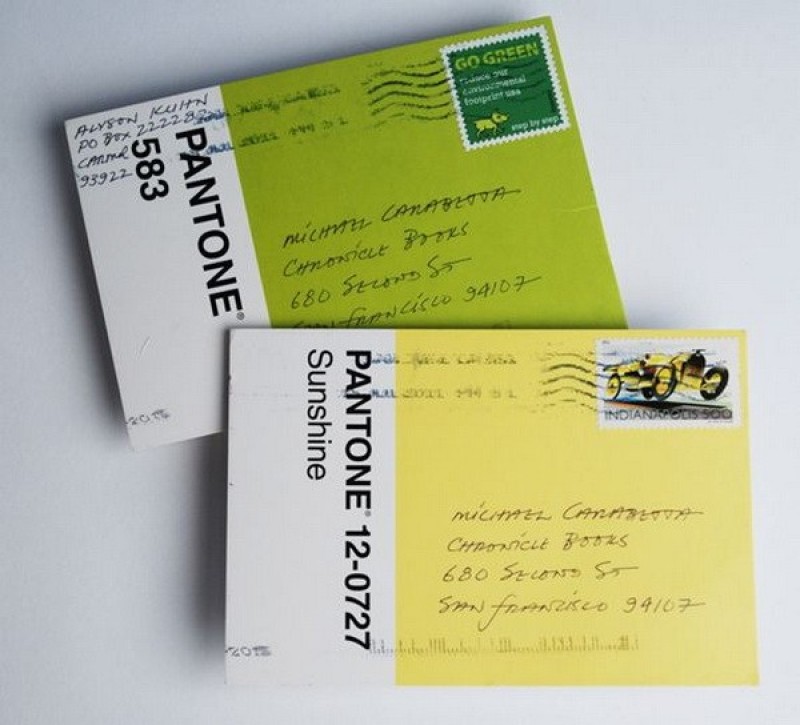 ALYSON KUHN
PO BOX 222282
CARMEL
93922
PANTONE®
583
GO GREEN
reduce our
environmental
footprint use
step by step
MICHAEL CARABETTA
CHRONICLE BOOKS
680 SECOND ST
SAN FRANCISCO 94107
PANTONE® 12-0727
Sunshine
INDIANAPOLIS 500
MICHAEL CARABETTA
CHRONICLE BOOKS
680 SECOND ST
SAN FRANCISCO 94107